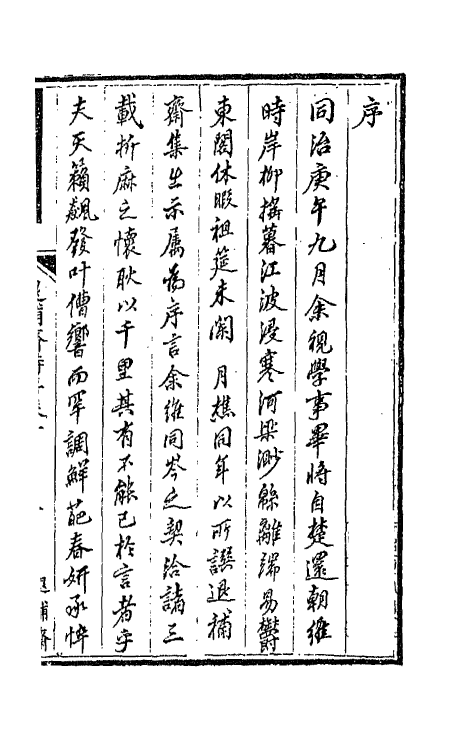 序
同治庚午九月余視學事畢將自楚還朝維
時岸柳搖暮江波浸寒河梁渺緜離端易鬱
東閣休暇祖筵未闌 月樵同年以所譔退補
齋集出示屬為序言余維同岑之契洽諸三
載折麻之懷耿以千里其有不能已於言者乎
夫天籟飆發叶僡響而罕調鮮葩春妍承悴
退補齋